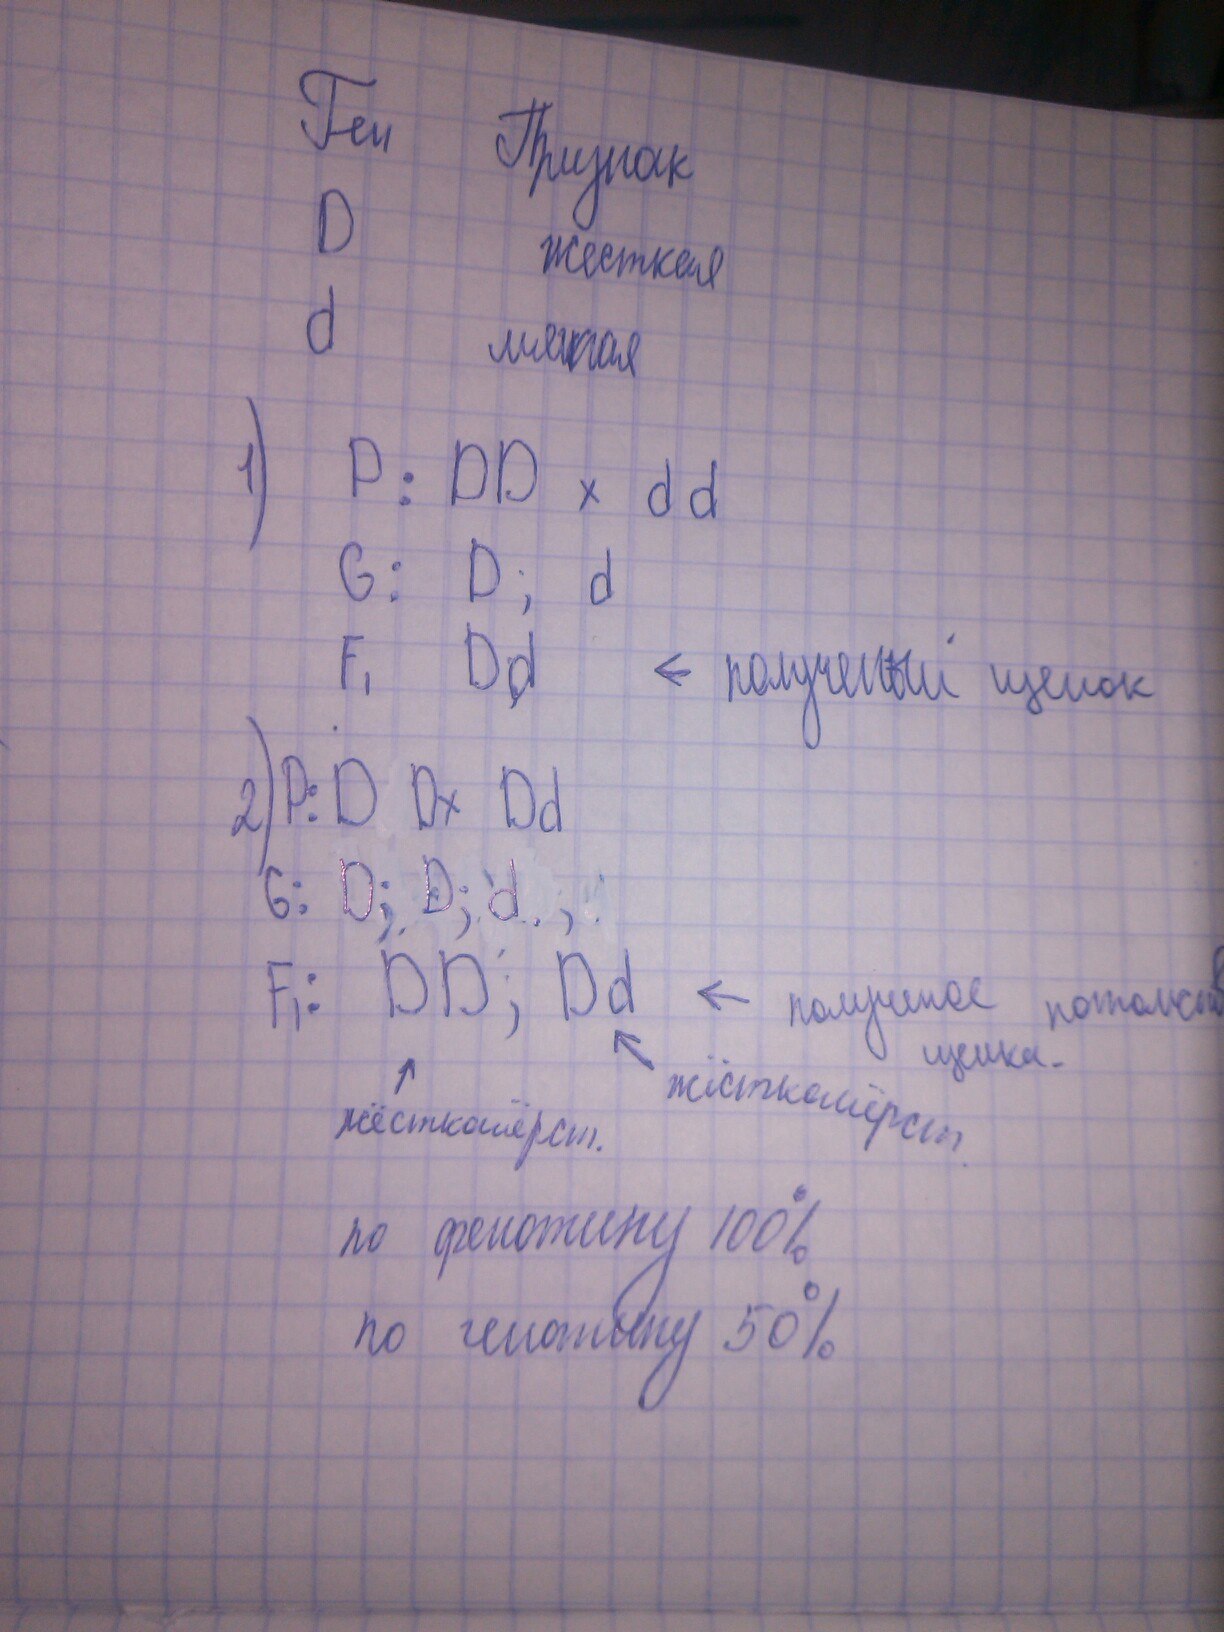 Ген Признак
D жесткая
d мягкая
1) P: DD x dd
G: D; d
F₁ Dd ← полученный щенок
2) P: D D x Dd
G: D; D; d
F₁: DD; Dd ← полученое потомство
щенка.
жёсткошёрст.
жёсткошёрст.
по фенотипу 100%
по генотипу 50%